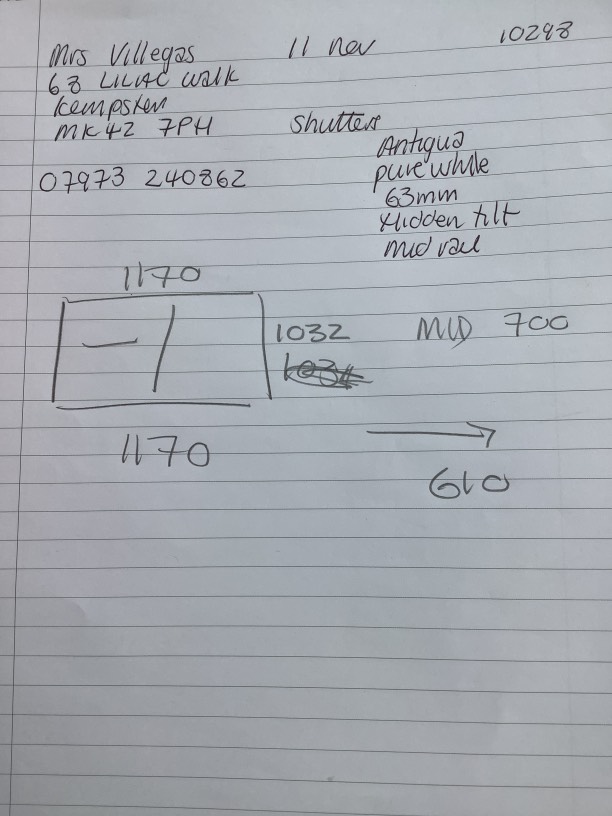 Mrs Villegas 11 nov 10298
68 LILAC walk
Kempston
MK42 7PH Shutters
Antigua
pure white
07973 240862
63mm
Hidden tilt
mid rail
1170
1032 MID 700
1034
1170
610